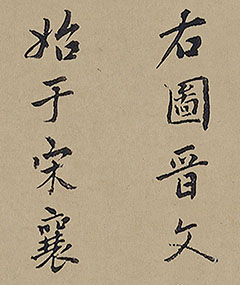 右圖晋文
始于宋襄